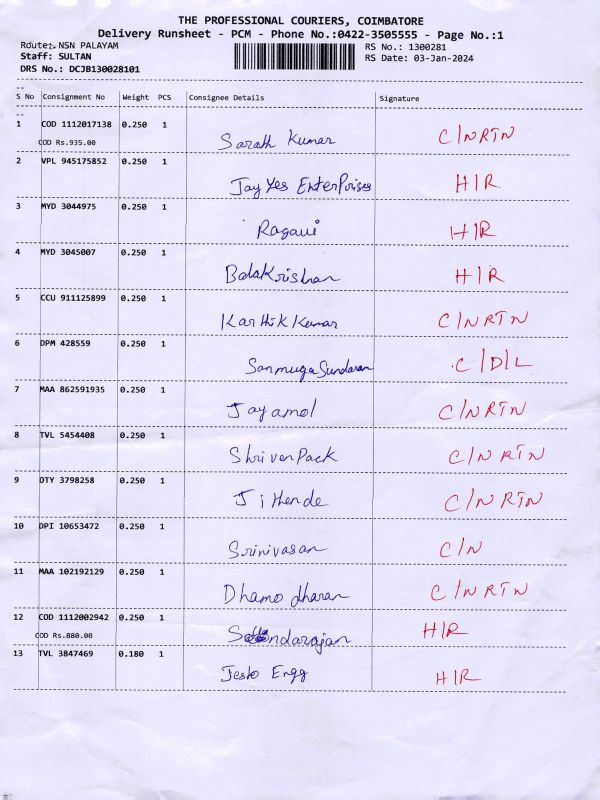 THE PROFESSIONAL COURIERS, COIMBATORE
Delivery Runsheet - PCM - Phone No.:0422-3505555 - Page No.:1
Route: NSN PALAYAM RS No.: 1300281
Staff: SULTAN RS Date: 03-Jan-2024
DRS No.: DCJB130028101
--
S No Consignment No Weight PCS Consignee Details Signature
--
1 COD 1112017138 0.250 1 Sarath Kumar C/NRTN
COD Rs.935.00
2 VPL 945175852 0.250 1 Jay Yes EnterPrises H|R
3 MYD 3044975 0.250 1 Ragavi H|R
4 MYD 3045007 0.250 1 BalaKrishnan H|R
5 CCU 911125899 0.250 1 Karthik Kumar C/NRTN
6 DPM 428559 0.250 1 Sanmuga Sundaran C/D/L
7 MAA 862591935 0.250 1 Jayamol C/NRTN
8 TVL 5454408 0.250 1 Shriven Pack C/NRTN
9 OTY 3798258 0.250 1 Jithende C/NRTN
10 DPI 10653472 0.250 1 Srinivasan C/N
11 MAA 102192129 0.250 1 Dhamodharan C/NRTN
12 COD 1112002942 0.250 1 H|R
COD Rs.880.00
13 TVL 3847469 0.180 1 Testo Engg H|R